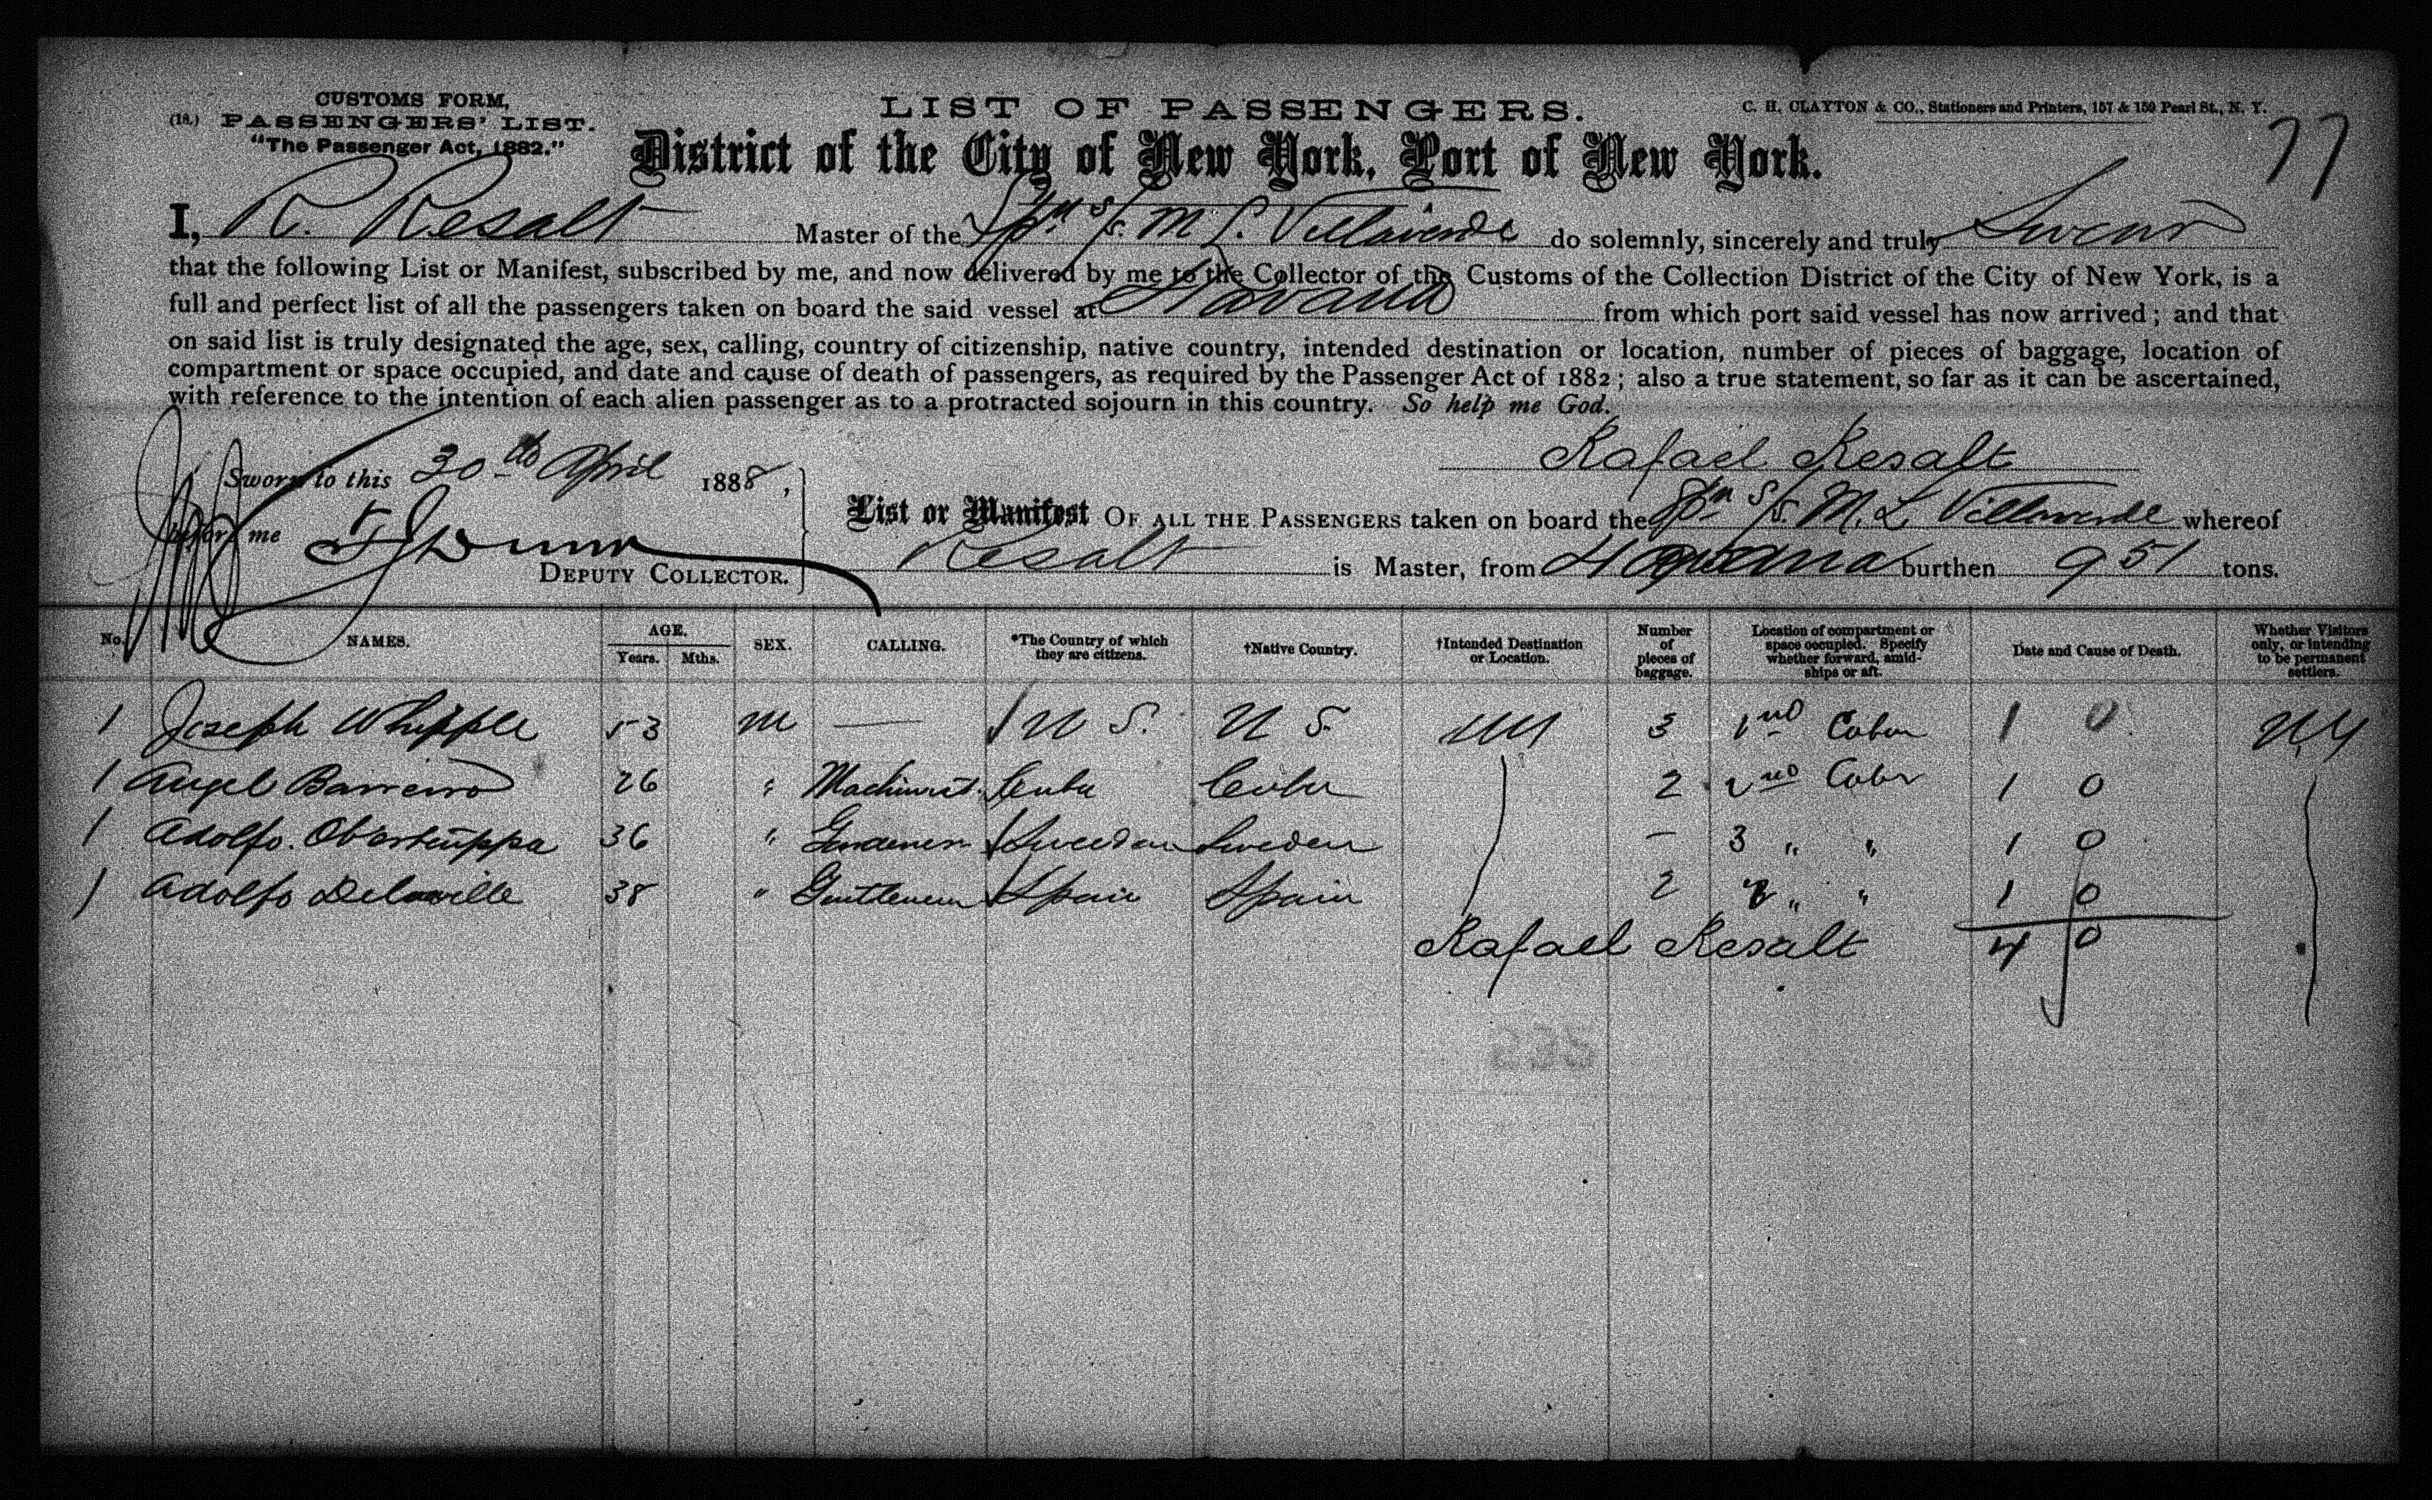 CUSTOMS FORM,
(18.) PASSENGERS' LIST.
"The Passenger Act, 1882."
LIST OF PASSENGERS.
C. H. CLAYTON & CO., Stationers and Printers, 157 & 159 Pearl St., N. Y.
77
District of the City of New York, Port of New York.
I, R. Resalt Master of the Spn S/S. M. L. Villaverde do solemnly, sincerely and truly Swear
that the following List or Manifest, subscribed by me, and now delivered by me to the Collector of the Customs of the Collection District of the City of New York, is a
full and perfect list of all the passengers taken on board the said vessel at Havana from which port said vessel has now arrived; and that
on said list is truly designated the age, sex, calling, country of citizenship, native country, intended destination or location, number of pieces of baggage, location of
compartment or space occupied, and date and cause of death of passengers, as required by the Passenger Act of 1882; also a true statement, so far as it can be ascertained,
with reference to the intention of each alien passenger as to a protracted sojourn in this country. So help me God.
Rafael Resalt
Sworn to this 30th April 1888,
before me
DEPUTY COLLECTOR.
List or Manifest OF ALL THE PASSENGERS taken on board the Spn S/S. M. L. Villaverde whereof
Resalt is Master, from Havana burthen 951 tons.
No. NAMES. AGE. Years. Mths. SEX. CALLING. *The Country of which they are citizens. †Native Country. †Intended Destination or Location. Number of pieces of baggage. Location of compartment or space occupied. Specify whether forward, amidships or aft. Date and Cause of Death. Whether Visitors only, or intending to be permanent settlers.
1 Joseph Whipple 53 M — U S. U S. NY 3 1nd Cabin 1 0 N.Y
1 Angel Barreiro 26 " Machinist. Cuba Cuba 2 2nd Cabn 1 0
1 Adolfo. 36 " Gardener Sweden Sweden — 3 " " 1 0
1 Adolfo Delaville 38 " Gentleman Spain Spain 2 2 " " 1 0
Rafael Resalt 4 0